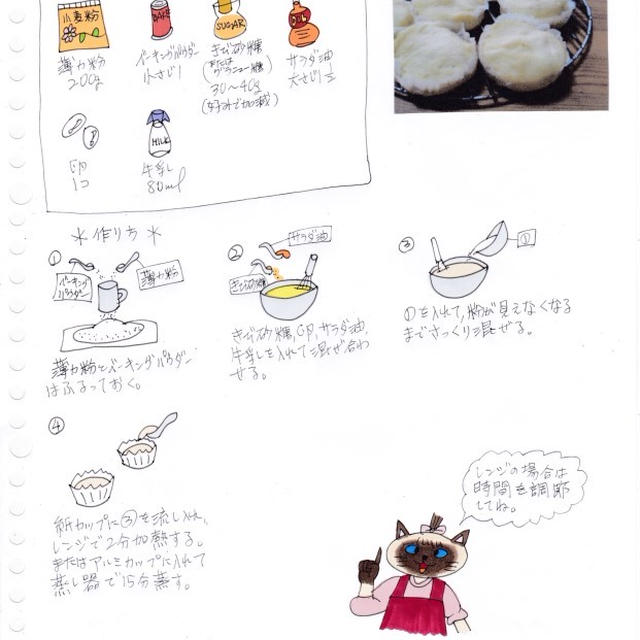 小麦粉
BAKE
SUGAR
OIL
薄力粉
200g
ベーキングパウダー
小さじ1
きび砂糖
(または
グラニュー糖)
30〜40g
(好みで加減)
サラダ油
大さじ1/2
MILK
卵
1コ
牛乳
80ml
＊作り方＊
①
ベーキング
パウダー
薄力粉
薄力粉とベーキングパウダー
はふるっておく。
②
サラダ油
きび砂糖
きび砂糖,卵,サラダ油,
牛乳を入れて混ぜ合わ
せる。
③
①
①を入れて,粉が見えなくなる
までさっくり混ぜる。
④
紙カップに③を流し入れ,
レンジで2分加熱する。
またはアルミカップに入れて
蒸し器で15分蒸す。
レンジの場合は
時間を調節
してね。